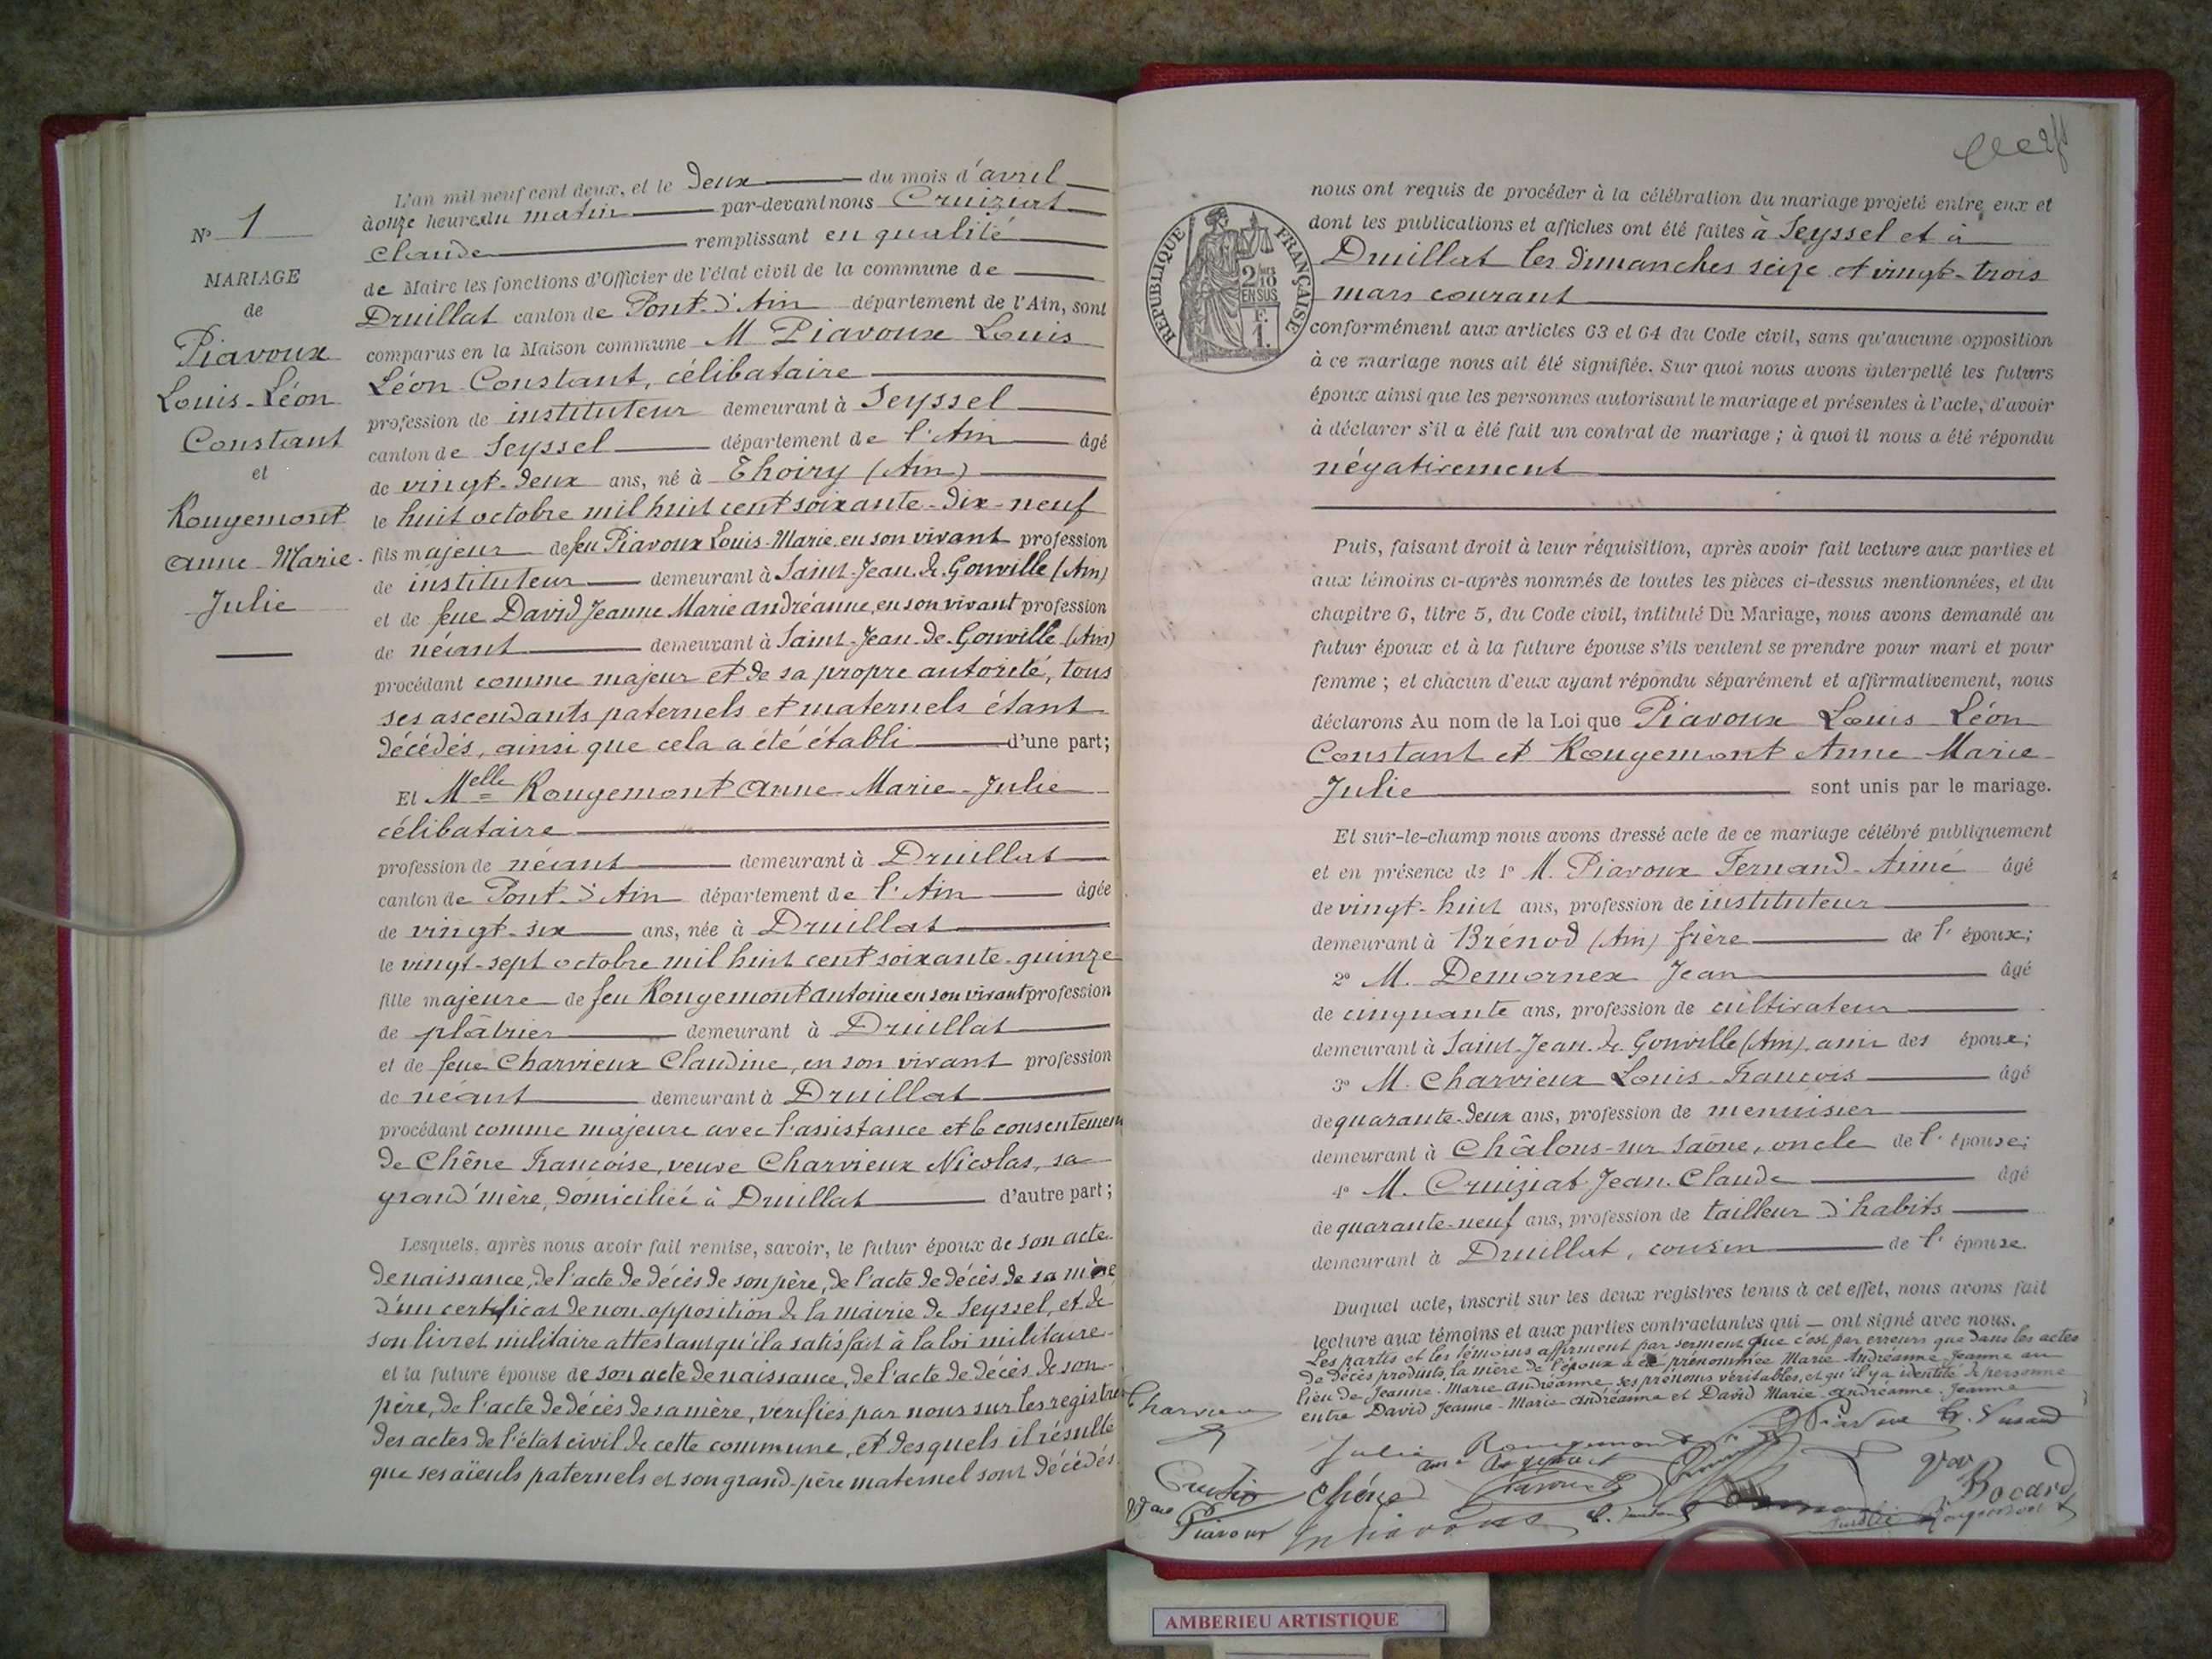 N° 1
MARIAGE
de
Piavoux
Louis-Léon
Constant
et
Rougemont
Anne-Marie-
Julie
L'an mil neuf cent deux, et le deux du mois d'avril
à onze heures du matin par-devant nous Cruiziat
Claude remplissant en qualité
de Maire les fonctions d'Officier de l'état civil de la commune de
Druillat canton de Pont-d'Ain département de l'Ain, sont
comparus en la Maison commune M Piavoux Louis
Léon Constant, célibataire
profession de instituteur demeurant à Seyssel
canton de Seyssel département de l'Ain âgé
de vingt-deux ans, né à Thoiry (Ain)
le huit octobre mil huit cent soixante-dix-neuf
fils majeur de feu Piavoux Louis-Marie, en son vivant profession
de instituteur demeurant à Saint-Jean-de-Gonville (Ain)
et de feue David Jeanne Marie andréanne, en son vivant profession
de néant demeurant à Saint-Jean-de-Gonville (Ain)
procédant comme majeur et de sa propre autorité, tous
ses ascendants paternels et maternels étant
décédés, ainsi que cela a été établi d'une part;
Et Melle Rougemont Anne-Marie-Julie
célibataire
profession de néant demeurant à Druillat
canton de Pont-d'Ain département de l'Ain âgée
de vingt-six ans, née à Druillat
le vingt-sept octobre mil huit cent soixante-quinze
fille majeure de feu Rougemont Antoine en son vivant profession
de plâtrier demeurant à Druillat
et de feue Charvieux Claudine, en son vivant profession
de néant demeurant à Druillat
procédant comme majeure avec l'assistance et le consentement
de Chêne Françoise, veuve Charvieux Nicolas, sa
grand'mère, domiciliée à Druillat d'autre part;
Lesquels, après nous avoir fait remise, savoir, le futur époux de son acte
de naissance, de l'acte de décès de son père, de l'acte de décès de sa mère
d'un certificat de non opposition de la mairie de Seyssel, et de
son livret militaire attestant qu'il a satisfait à la loi militaire
et la future épouse de son acte de naissance, de l'acte de décès de son
père, de l'acte de décès de sa mère, vérifiés par nous sur les registres
des actes de l'état civil de cette commune, et desquels il résulte
que ses aïeuls paternels et son grand-père maternel sont décédés.
RÉPUBLIQUE FRANÇAISE
2/10
EN SUS
F.
1.
nous ont requis de procéder à la célébration du mariage projeté entre eux et
dont les publications et affiches ont été faites à Seyssel et à
Druillat les dimanches seize et vingt-trois
mars courant
conformément aux articles 63 et 64 du Code civil, sans qu'aucune opposition
à ce mariage nous ait été signifiée. Sur quoi nous avons interpellé les futurs
époux ainsi que les personnes autorisant le mariage et présentes à l'acte, d'avoir
à déclarer s'il a été fait un contrat de mariage ; à quoi il nous a été répondu
négativement
Puis, faisant droit à leur réquisition, après avoir fait lecture aux parties et
aux témoins ci-après nommés de toutes les pièces ci-dessus mentionnées, et du
chapitre 6, titre 5, du Code civil, intitulé Du Mariage, nous avons demandé au
futur époux et à la future épouse s'ils veulent se prendre pour mari et pour
femme ; et chacun d'eux ayant répondu séparément et affirmativement, nous
déclarons Au nom de la Loi que Piavoux Louis Léon
Constant et Rougemont Anne-Marie
Julie sont unis par le mariage.
Et sur-le-champ nous avons dressé acte de ce mariage célébré publiquement
et en présence de 1° M. Piavoux Fernand-Aimé âgé
de vingt-huit ans, profession de instituteur
demeurant à Brénod (Ain) frère de l' époux;
2° M. Demornex Jean âgé
de cinquante ans, profession de cultivateur
demeurant à Saint-Jean-de-Gonville (Ain), ami des époux;
3° M. Charvieux Louis-François âgé
de quarante-deux ans, profession de menuisier
demeurant à Châlons-sur Saône, oncle de l' épouse;
4° M. Cruiziat Jean-Claude âgé
de quarante-neuf ans, profession de tailleur d'habits
demeurant à Druillat, cousin de l' épouse.
Duquel acte, inscrit sur les deux registres tenus à cet effet, nous avons fait
lecture aux témoins et aux parties contractantes qui ont signé avec nous.
Les partis et les témoins affirment par serment que c'est par erreurs que dans les actes
de décès produits, la mère de l'époux a été prénommée Marie Andréanne Jeanne au
lieu de Jeanne-Marie andréanne ses prénoms véritables, et qu'il y a identité de personne
entre David Jeanne-Marie-andréanne et David Marie-andréanne-Jeanne
Charvieux
Julie Rougemont
Chêne
Vve
Piavoux
Bocard
Rougemont
AMBERIEU ARTISTIQUE